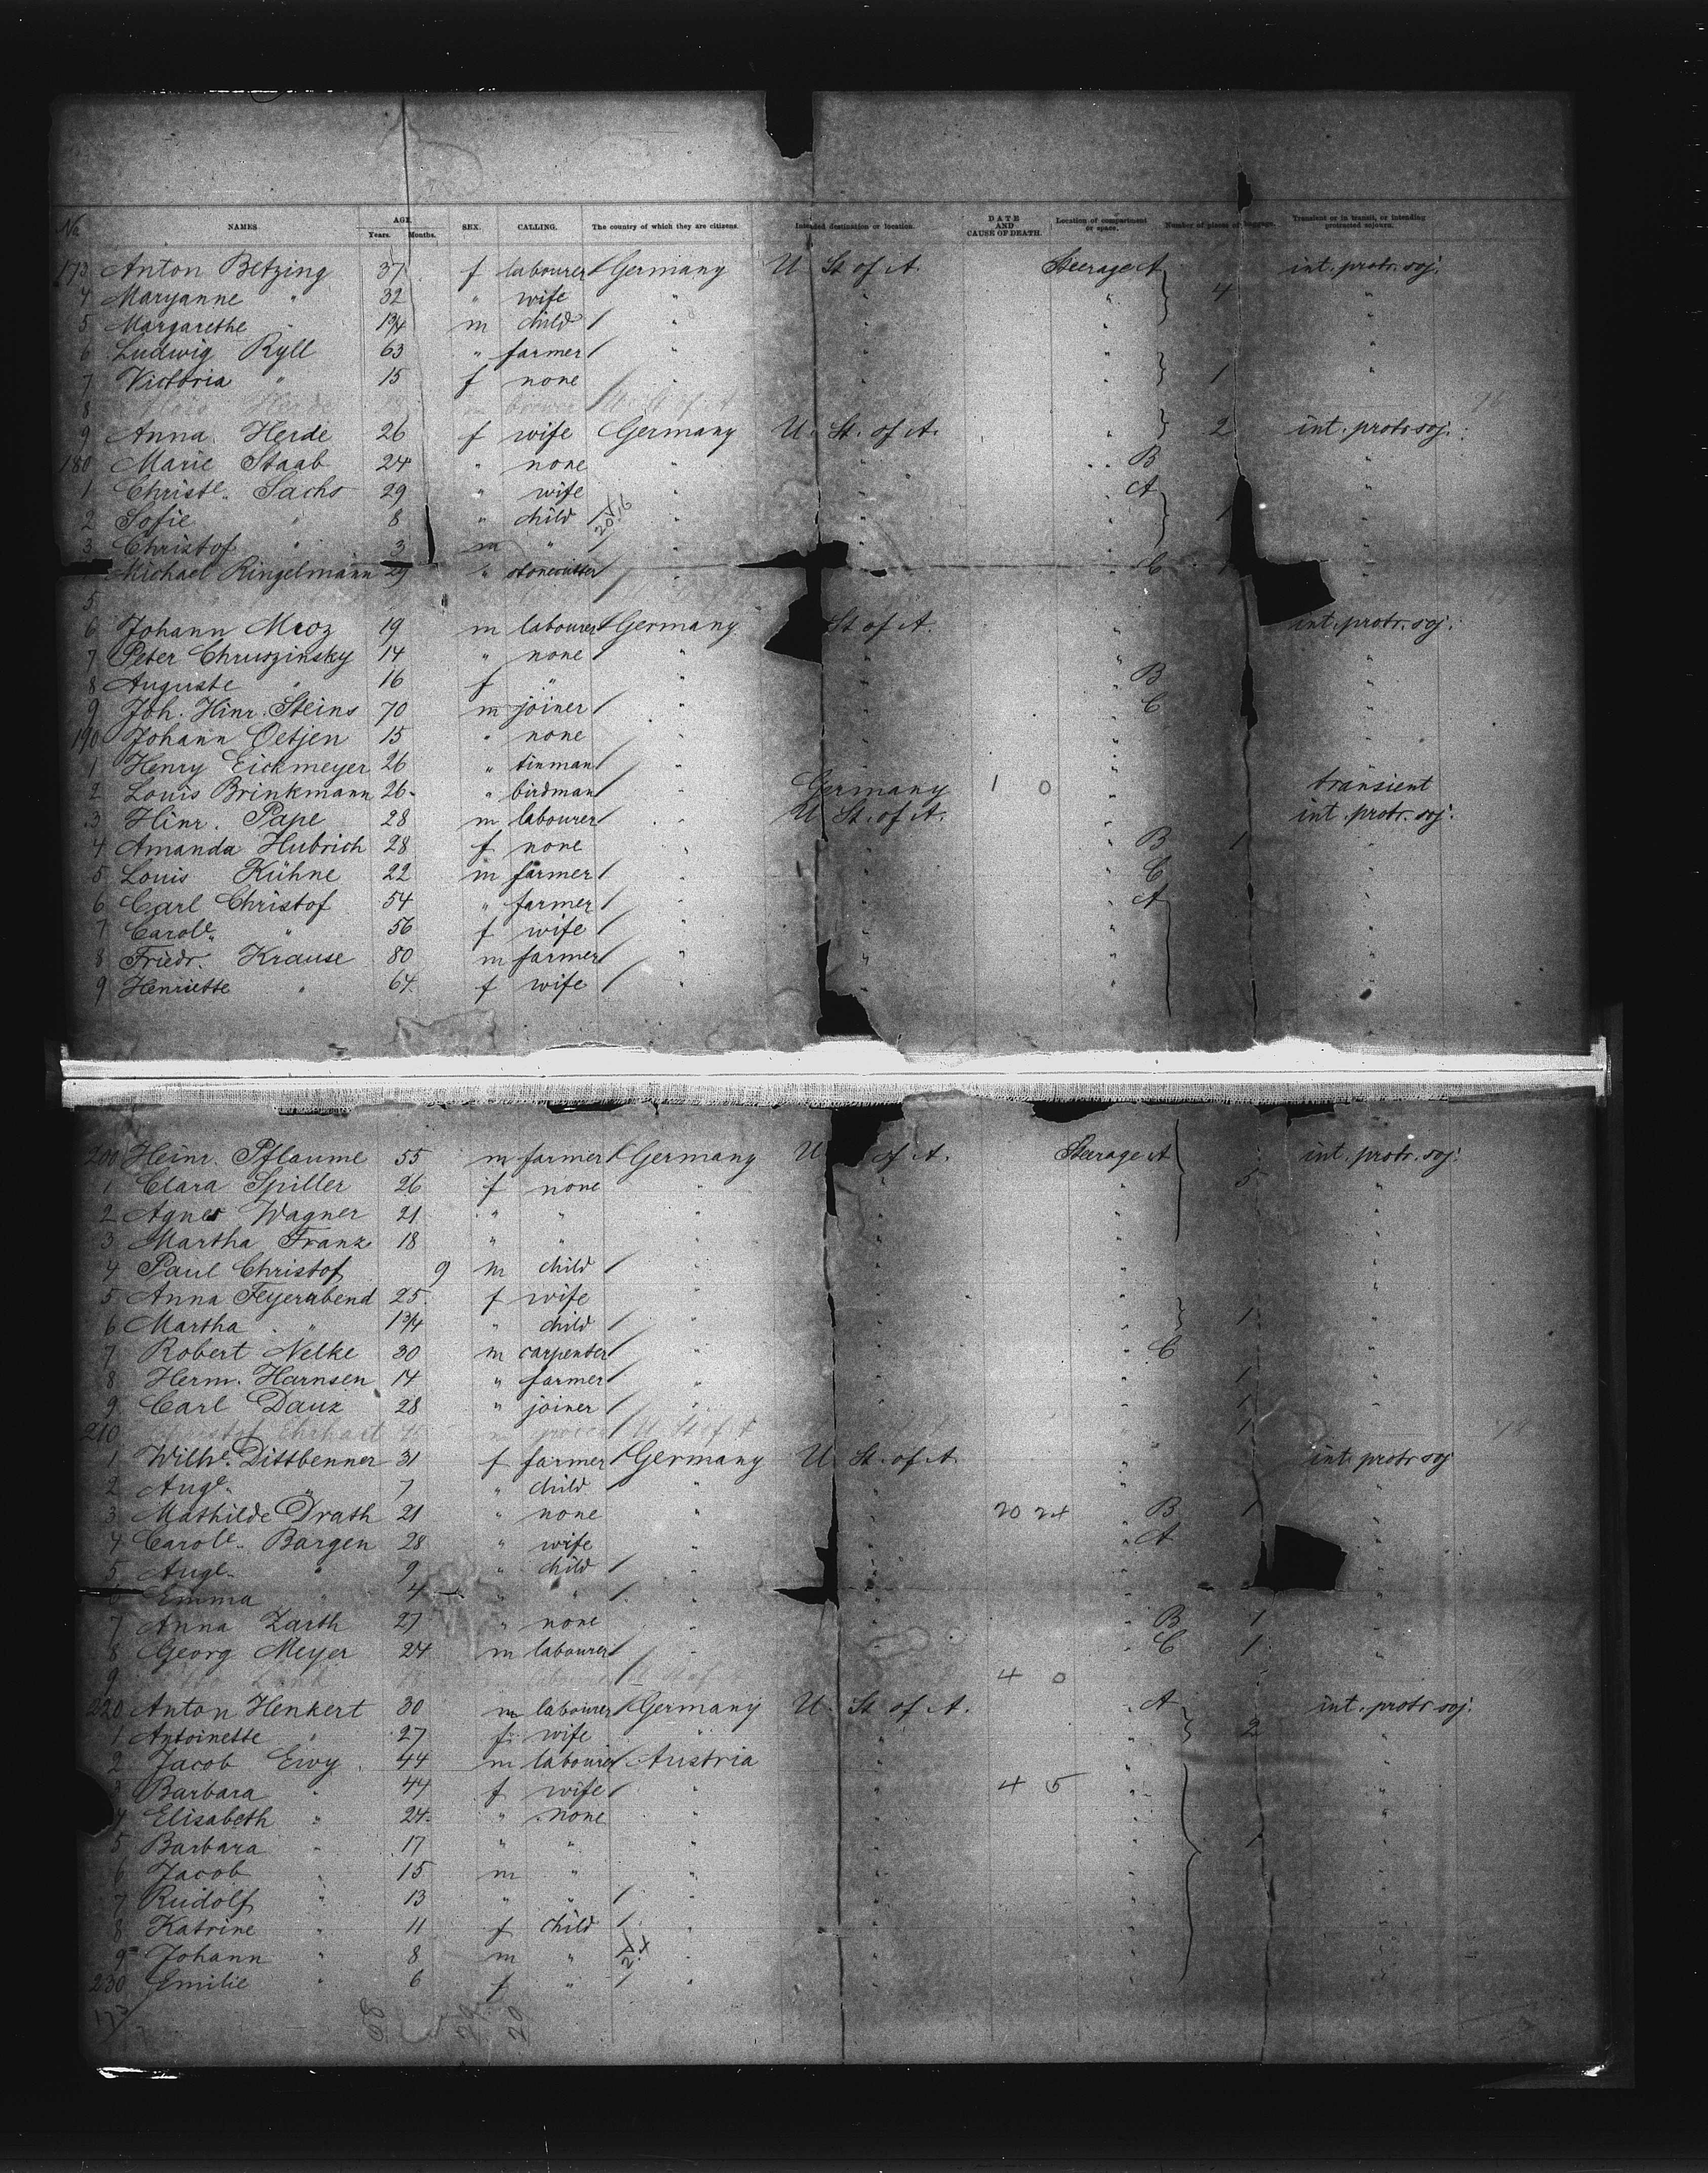 No. NAMES AGE. Years. Months. SEX. CALLING. The country of which they are citizens. Intended destination or location. DATE AND CAUSE OF DEATH. Location of compartment or space. Number of pieces of baggage. Transient or in transit, or intending protracted sojourn.
173 Anton Betzing 37 f labourer Germany U St of A. Steerage A int. protr. soj.
4 Maryanne " 32 " wife " " " 4 "
5 Margarethe " 1 3/4 m child " " " "
6 Ludwig Ryll 63 " farmer " " " "
7 Victoria " 15 f none " " " 1 "
8 Herde
9 Anna Herde 26 f wife Germany U. St. of A. " 2 int. protr. soj.
180 Marie Staab 24 " none " " " B "
1 Christe. Sachs 29 " wife " " " A "
2 Sofie " 8 " child " " " 1 "
3 Christof " 3 m " " " " "
Michael Ringelmann 29 " stonecutter " " C 1 "
5
6 Johann Mroz 19 m labourer Germany St of A. " int. protr. soj.
7 Peter Chruszinsky 14 " none " " " "
8 Auguste " 16 f " " " " B "
9 Joh. Hinr. Steins 70 m joiner " " " C "
190 Johann Oetjen 15 " none " " " "
1 Henry Eickmeyer 26 " tinman " " " "
2 Louis Brinkmann 26 " birdman " Germany 1 0 " transient
3 Hinr. Pape 28 m labourer " U St. of A. " int. protr. soj.
4 Amanda Hubrich 28 f none " " " B 1 "
5 Louis Kühne 22 m farmer " " " C "
6 Carl Christof 54 " farmer " " " A "
7 Carole. " 56 f wife " " " "
8 Friedr. Krause 80 m farmer " " " "
9 Henriette " 64 f wife " " " "
200 Heinr. Pflaume 55 m farmer Germany U of A. Steerage A int. protr. soj.
1 Clara Spiller 26 f none " " " 5 "
2 Agnes Wagner 21 " " " " " "
3 Martha Franz 18 " " " " " "
4 Paul Christof 9 m child " " " "
5 Anna Feyerabend 25 f wife " " " "
6 Martha " 1 3/4 " child " " " 1 "
7 Robert Nelke 30 m carpenter " " " C "
8 Herm. Harnsen 14 " farmer " " " 1 "
9 Carl Dauz 28 " joiner " " " 1 "
210 Ehrhart U St of A " 1
1 Wilhe. Dittbenner 31 f farmer Germany U St. of A " int. protr soj
2 Auge. " 7 " child " " " "
3 Mathilde Drath 21 " none " " 20 24 " B 1 "
4 Carole. Bargen 28 " wife " " " A "
5 Auge. " 9 " child " " " "
6 Emma " 4 " " " " " "
7 Anna Zarth 27 " none " " " B 1 "
8 Georg Meyer 24 m labourer " " " C 1 "
9 4 0
220 Anton Henkert 30 m labourer Germany U. St of A. " A int. protr soj.
1 Antoinette " 27 f wife " " " 2 "
2 Jacob Ewy 44 m labourer Austria " " "
3 Barbara " 44 f wife " " 4 5 " "
4 Elisabeth " 24 " none " " " "
5 Barbara " 17 " " " " " 1 "
6 Jacob " 15 m " " " " "
7 Rudolf " 13 " " " " " "
8 Katrine " 11 f child " " " "
9 Johann " 8 m " " " " "
230 Emilie " 6 f " " " " "
173